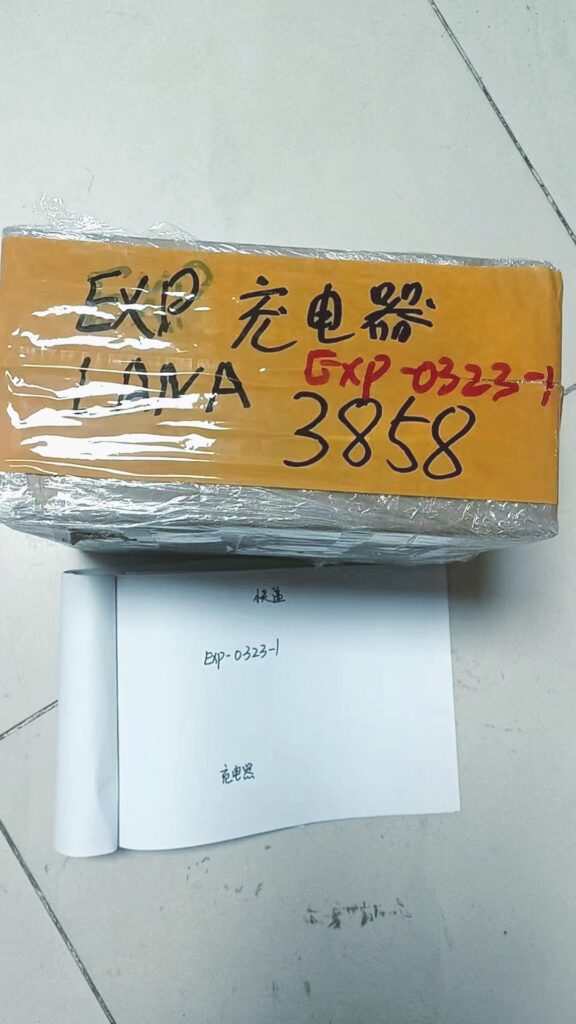 EXP 充电器
LANA EXP-0323-1
3858
快递
Exp-0323-1
充电器